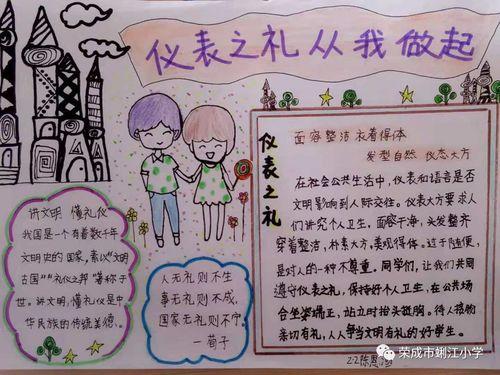 仪表之礼从我做起
讲文明 懂礼仪
我国是一个有着数千年
文明史的国家,素以"文明
古国""礼仪之邦"著称于
世。讲文明,懂礼仪是中
华民族的传统美德。
人无礼则不生
事无礼则不成,
国家无礼则不宁。
—荀子
仪表之礼
面容整洁 衣着得体
发型自然 仪态大方
在社会公共生活中,仪表和语言是否
文明影响到人际交往。仪表大方要求人
们讲究个人卫生,面容干净,头发整齐
穿着整洁,朴素大方,美观得体。过于随便,
是对人的一种不尊重。同学们,让我们共同
遵守仪表之礼,保持好个人卫生,在公共场
合坐姿端正,站立时抬头挺胸。待人接物
亲切有礼,人人争当文明有礼的好学生。
2.2陈恩
荣成市蜊江小学